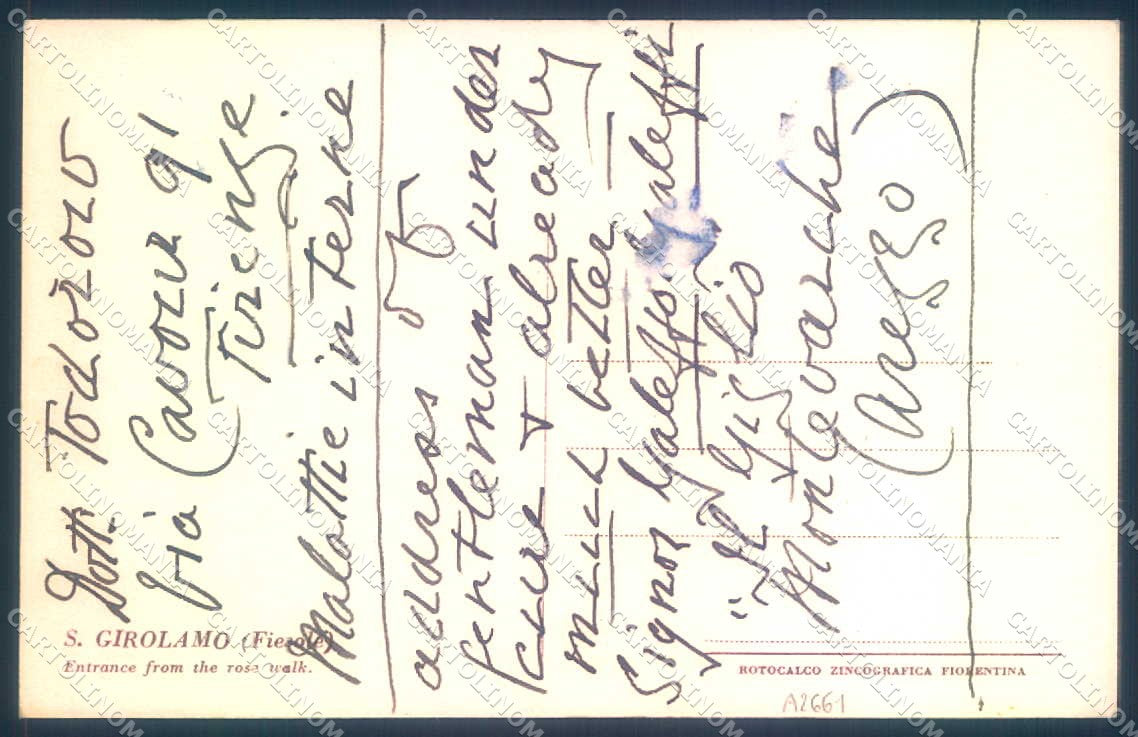 Dott. Todorow
Via Cavour 91
(Firenze
Malattie interne
address of
gentleman under
cure & already
much better
Signor Galeffo Galeffi
"Il Giglio
Montevarche
(Arezzo)
S. GIROLAMO (Fiesole)
Entrance from the rose walk.
ROTOCALCO ZINCOGRAFICA FIORENTINA
A2661
CARTOLINOMANIA